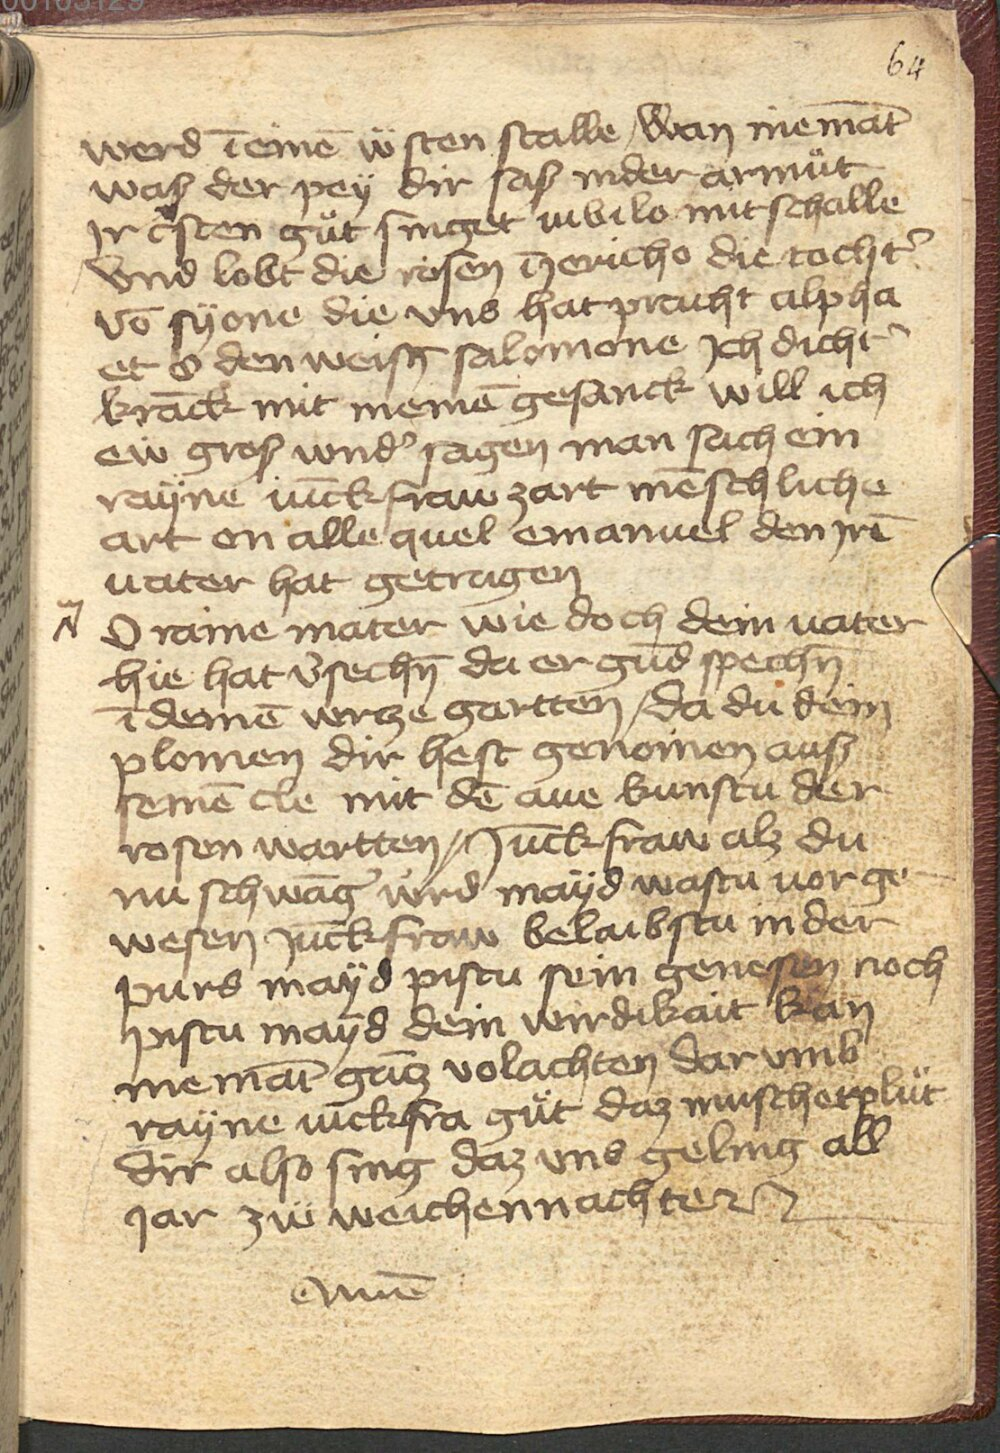 00103129
64
werd ī einē ẅsten stalle / Wan niemāt
waß der pey dir saß in der armüt
Jr c̄sten güt singet iubilo mit schalle
Vnd lobt die rosen Jhericho die tocht'
vō syone die vns hat pracht alpha
et o den weisñ salomone Jch dicht'
krāck mit meinē gesanck will ich
ew groß wnd' sagen man sach ein
rayne iūckfraw zart mēschliche
art on alle quel emanuel den Jrē
uater hat getragen
O raine mater wie doch dein uater
hie hat v'sechñ da er gūd spechñ
ī deinē wrcze gartten / da du dein
plomen dir hest genomen auß
seinē cle mit dē aue kunstu der
rosen wartten / Jūckfraw alz du
nu schwāg' wrd mayd wastu uor ge
wesen Jūckfraw belaibstu in der
purd mayd pistu sein genesen noch
pistu mayd dein wirdikait kan
niemāt gācz volachten dar vmb
rayne iūckfra güt daz muschetplüt
dir also sing daz vns geling all
Jar zw weichennachten
Amē